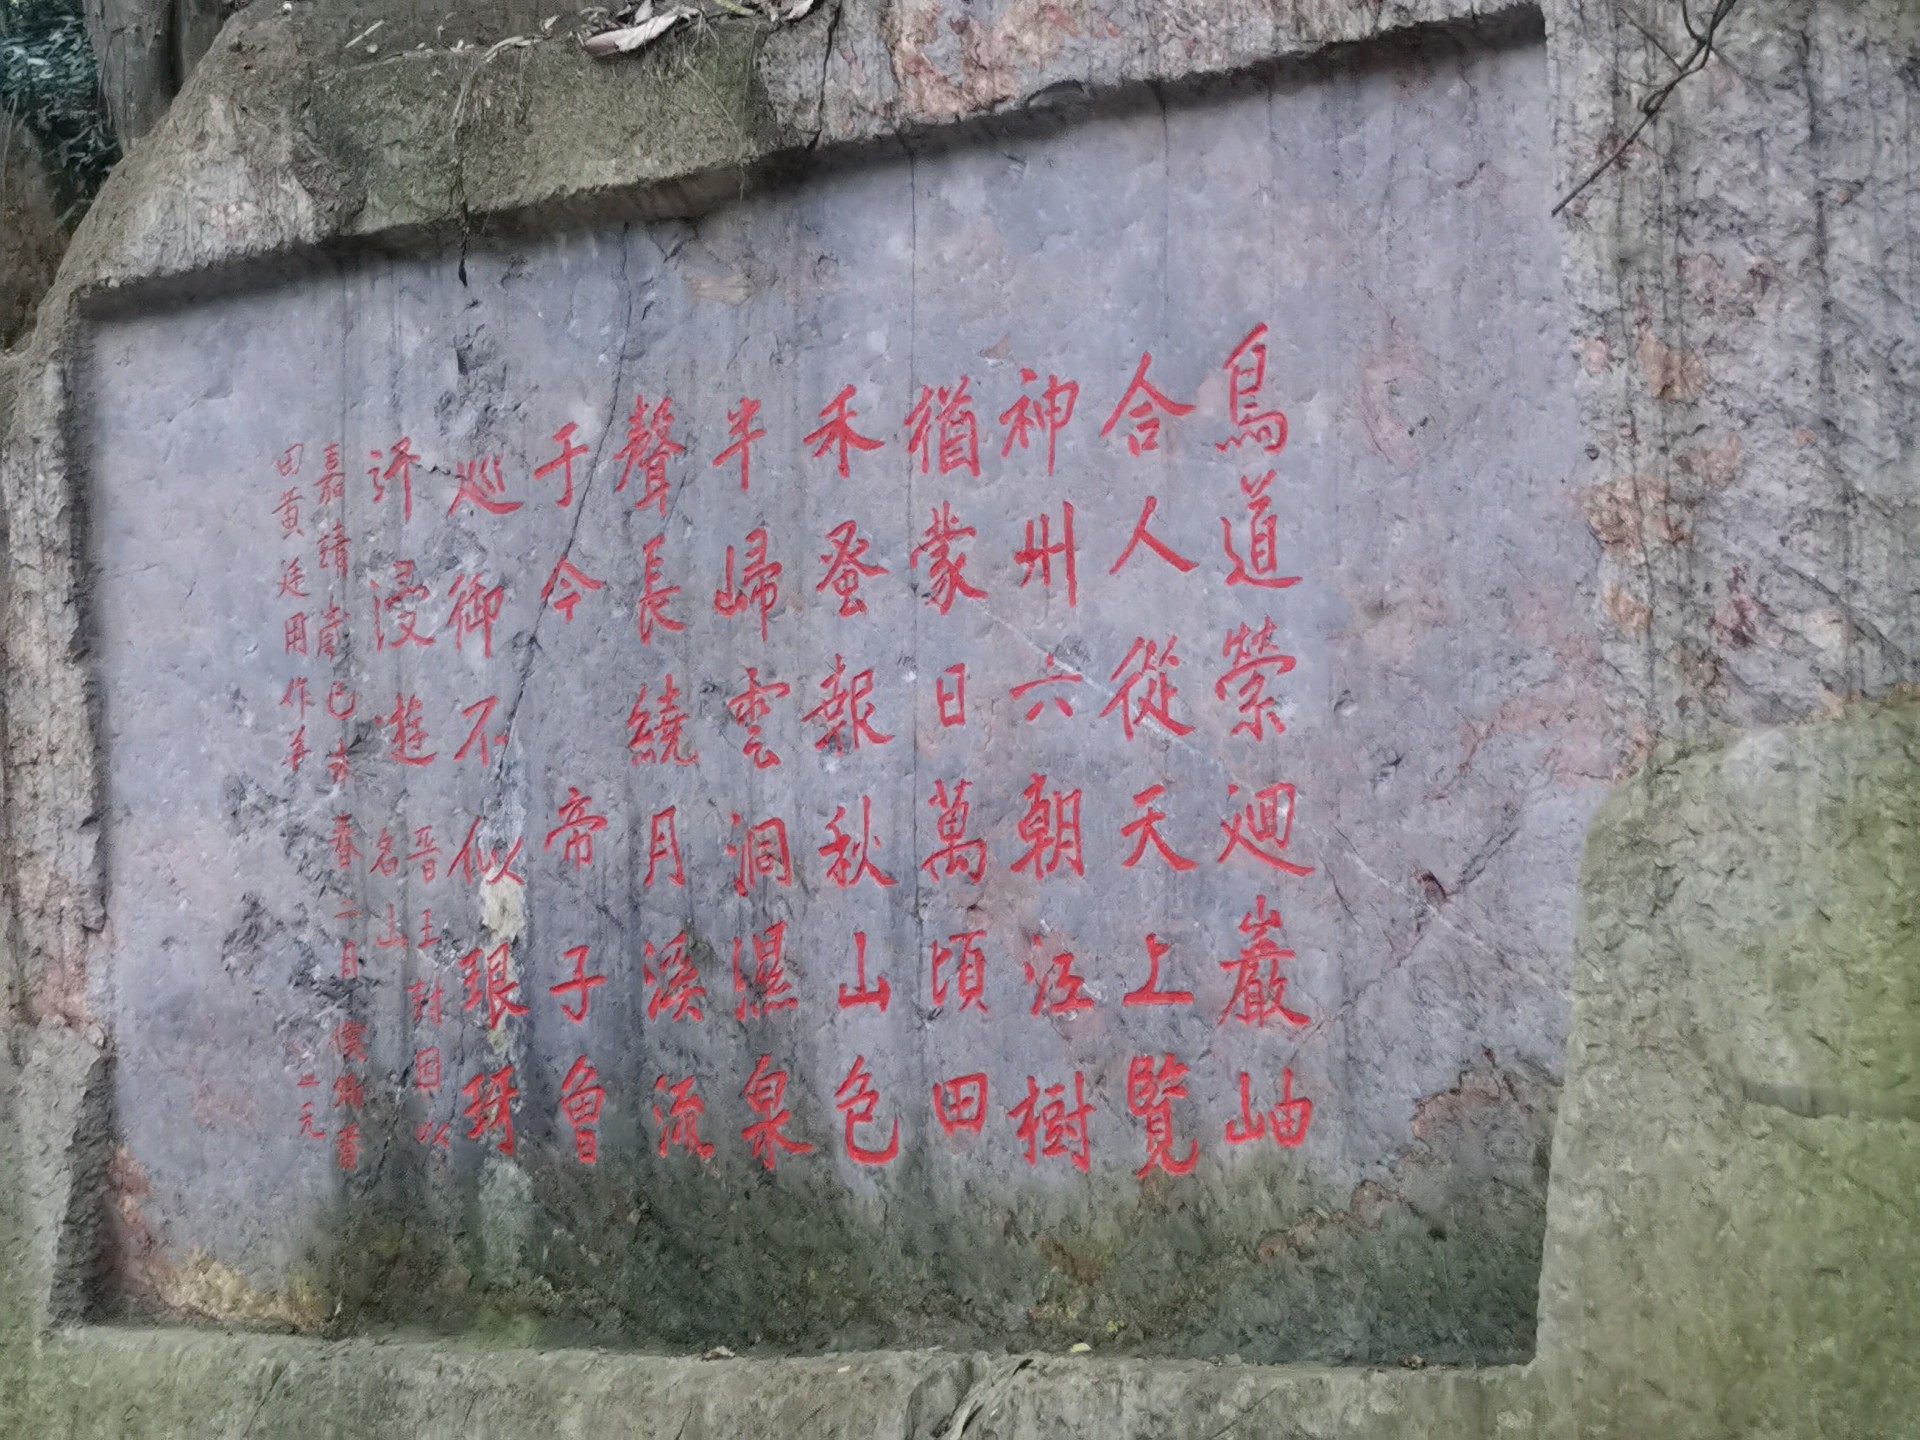 鳥道縈迴巖岫
合人從天上覽
神州六朝江樹
猶蒙日萬頃田
禾蚤報秋山色
半歸雲洞濕泉
聲長繞月溪流
于今帝子曾
巡御不似琅玡
許浸遊
晋王封因以
名山
嘉靖歲己未春二月僕卿莆
田黃廷用作并